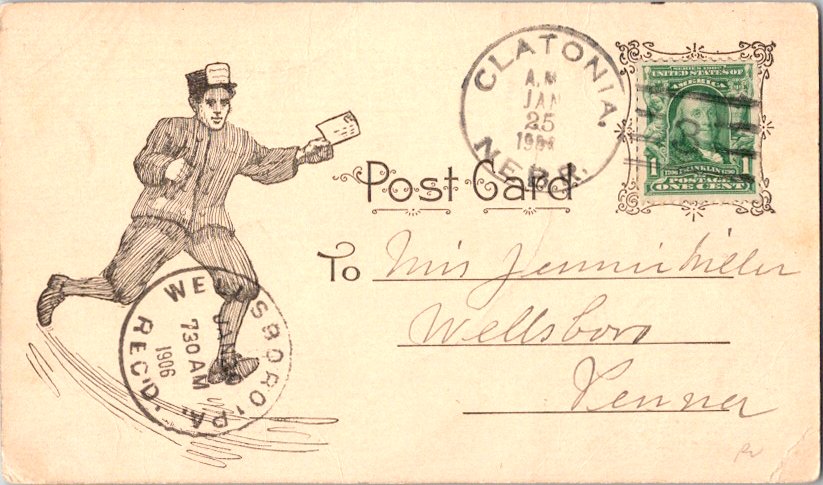 CLATONIA,
NEBR.
A.M.
JAN
25
1906
SERIES 1902
UNITED STATES OF
AMERICA
1 1
FRANKLIN
POSTAGE
ONE CENT
Post Card
To Miss Jennie Miller
Wellsboro
Penna
WELLSBORO, PA.
JAN
730 AM
1906
REC'D.